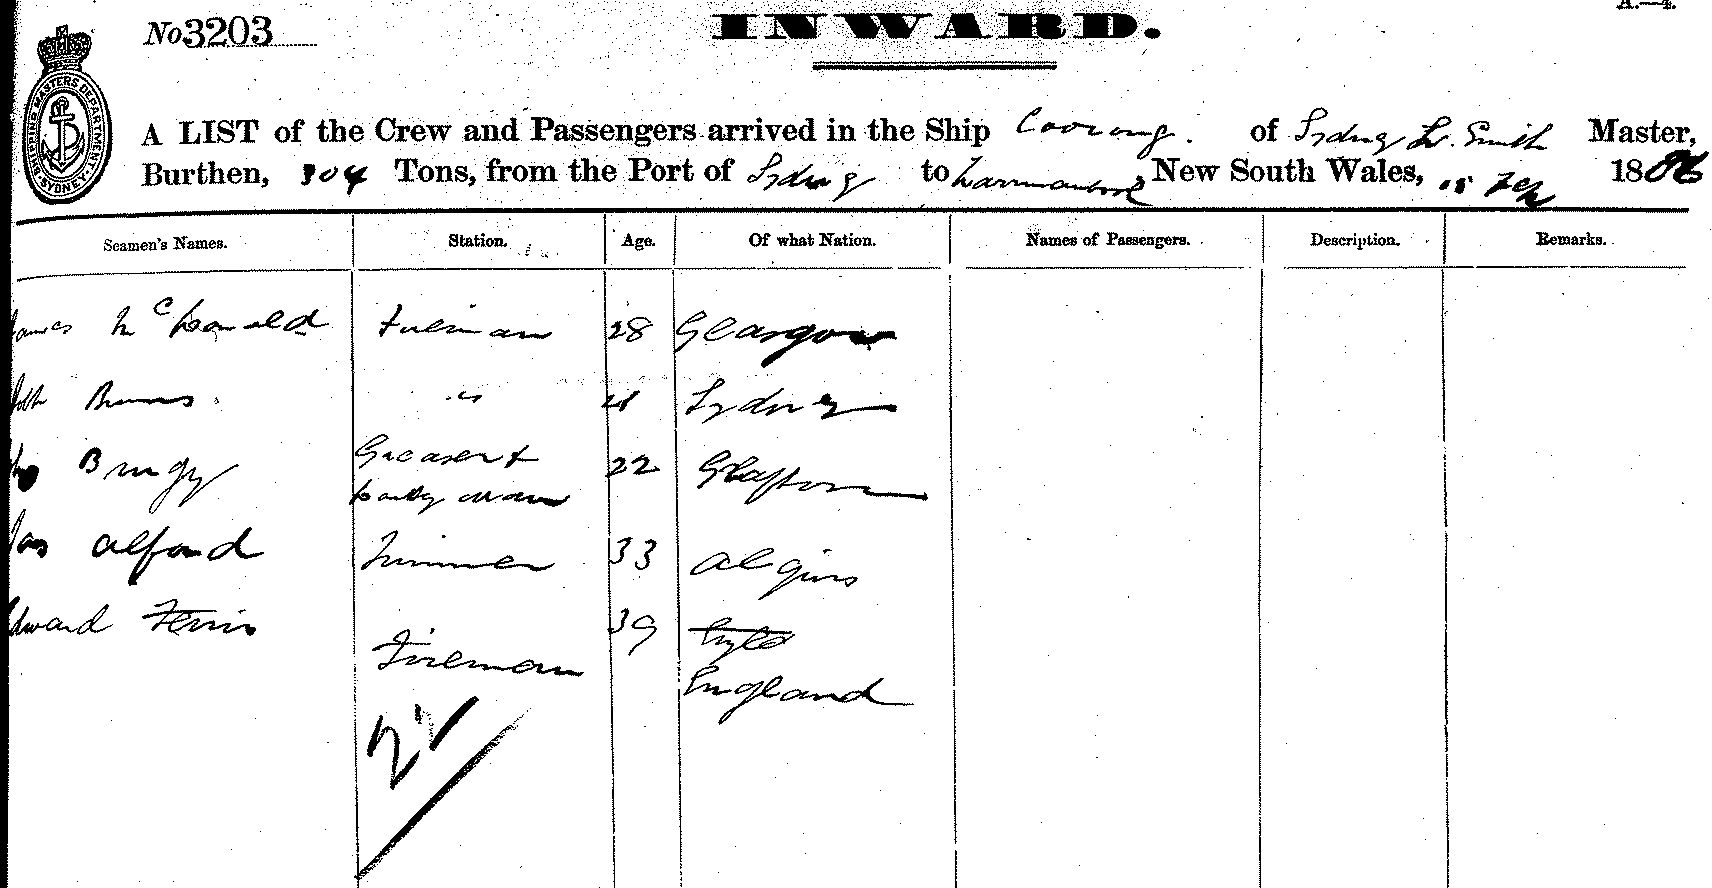 No 3203
INWARD.
A.—4.
SHIPPING MASTERS DEPARTMENT SYDNEY
A LIST of the Crew and Passengers arrived in the Ship Coorong. of Sydney W. Smith Master,
Burthen, 304 Tons, from the Port of Sydney to Warrnambool, New South Wales, 18 Feb 1886
Seamen's Names. Station. Age. Of what Nation. Names of Passengers. Description. Remarks.
James McDonald Fireman 28 Glasgow
Burns " 21 Sydney
Greaser &
22 Grafton
Donkey man
Jas Alford Trimmer 33
Edward 39
Fireman
England